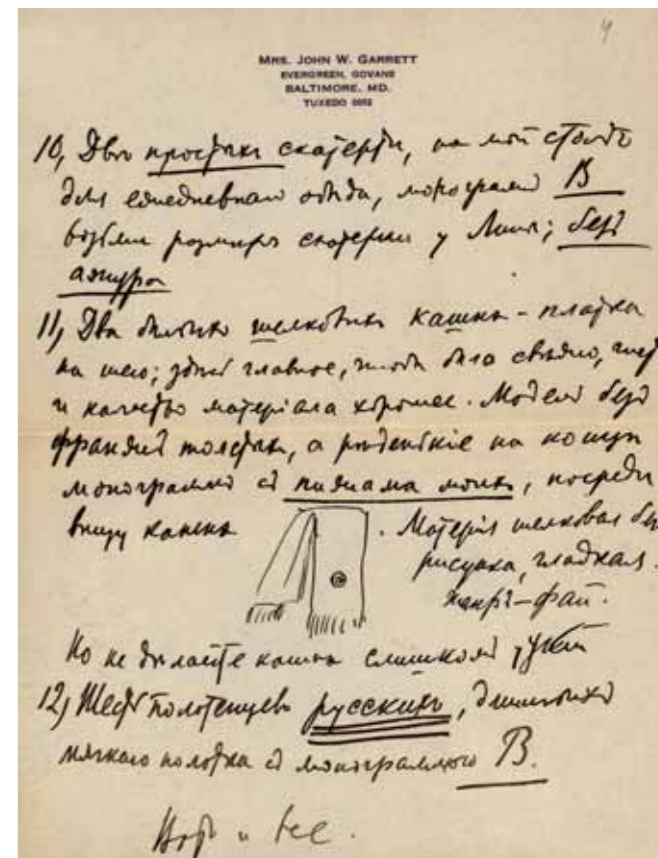 4
MRS. JOHN W. GARRETT
EVERGREEN, GOVANS
BALTIMORE, MD.
TUXEDO
10, Двѣ простыхъ скатерти, на мой столъ
для ежедневнаго обѣда, монограмма B
возьми размѣръ скатерти у; безъ
ажура
11, Два шелковыхъ кашнэ - платка
на шею; главное, чтобы было
и качество матеріала хорошее. Модель безъ
толстыхъ, а на концѣ
монограмма съ пижама моихъ, посреди
внизу кашнэ. Матерія шелковая безъ
рисунка, гладкая.
жанръ-фай.
Но не дѣлайте кашнэ слишкомъ
12, Шесть полотенцевъ русскихъ,
мягкаго полотна съ монограммою B.
Вотъ и все.